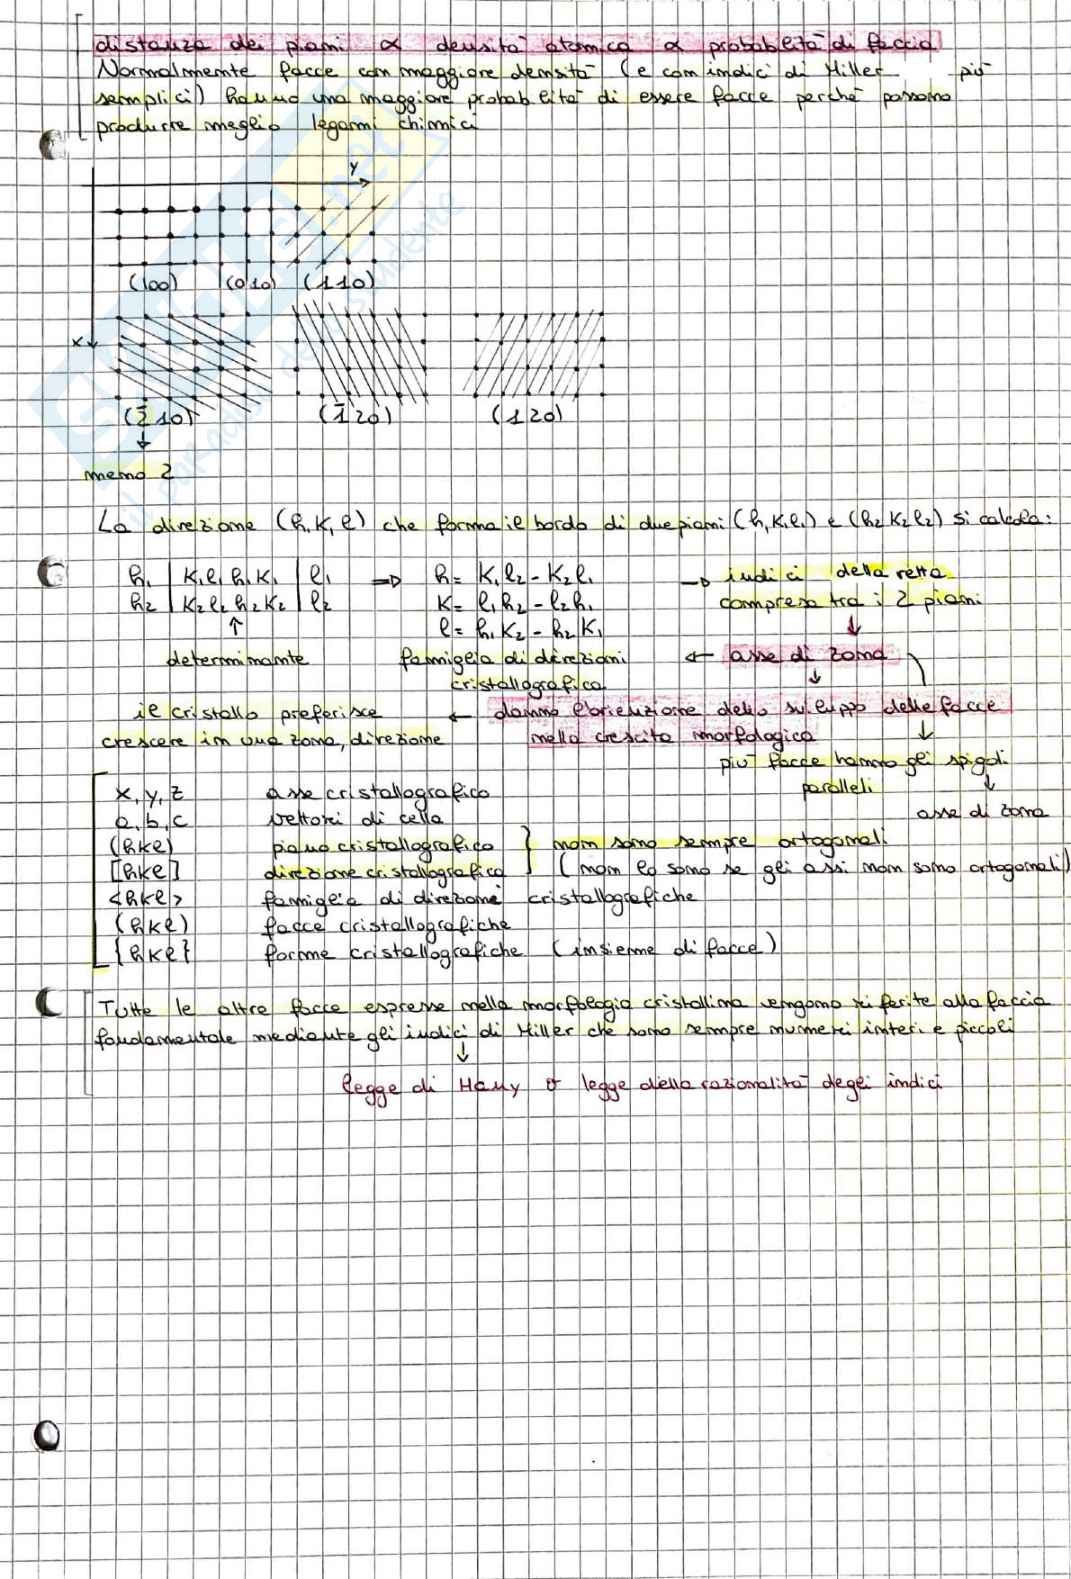 distanza dei piani ∝ densità atomica ∝ probabilità di faccia
Normalmente facce con maggiore densità (e con indici di Miller più
semplici) hanno una maggiore probabilità di essere facce perché possono
produrre meglio legami chimici
Y
(100) (010) (110)
X
(2̄10) (1̄20) (120)
↓
meno 2
La direzione (h,k,l) che forma il bordo di due piani (h₁k₁l₁) e (h₂k₂l₂) si calcola:
h₁ | k₁l₁h₁k₁ | l₁ ⇒ h = k₁l₂ - k₂l₁ → indici della retta
h₂ | k₂l₂h₂k₂ | l₂ k = l₁h₂ - l₂h₁ compresa tra i 2 piani
↑ l = h₁k₂ - h₂k₁ ↓
determinante famiglia di direzioni ← asse di zona
cristallografica ↓
il cristallo preferisce ← danno l'orienzione dello sviluppo delle facce
crescere in una zona, direzione nella crescita morfologica ↓
più facce hanno gli spigoli
paralleli ↓
asse di zona
x, y, z asse cristallografico
a, b, c vettori di cella
(hkl) piano cristallografico } non sono sempre ortogonali
[hkl] direzione cristallografica (non lo sono se gli assi non sono ortogonali)
<hkl> famiglia di direzione cristallografiche
(hkl) facce cristallografiche
{hkl} forme cristallografiche (insieme di facce)
Tutte le altre facce espresse nella morfologia cristallina vengono riferite alla faccia
fondamentale mediante gli indici di Miller che sono sempre numeri interi e piccoli
↓
legge di Hauy o legge della razionalità degli indici